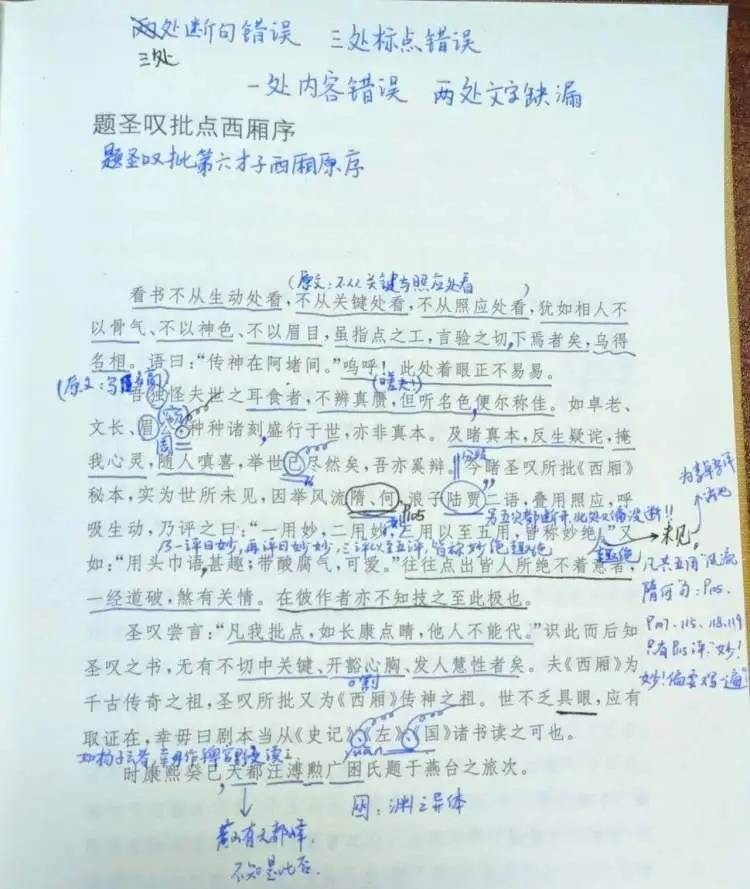 三处断句错误 三处标点错误
一处内容错误 两处文字缺漏
题圣叹批点西厢序
题圣叹批第六才子西厢原序
(原文:不从关键与照应处看)
看书不从生动处看,不从关键处看,不从照应处看,犹如相人不
以骨气、不以神色、不以眉目,虽指点之工,言验之切,下焉者矣,乌得
名相。语曰:“传神在阿堵间。”呜呼!此处着眼正不易易。
(嗟夫!)
吾独怪夫世之耳食者,不辨真赝,但听名色,便尔称佳。如卓老、
文长、眉公种种诸刻,盛行于世,亦非真本。及睹真本,反生疑诧,掩
我心灵,随人嗔喜,举世已尽然矣,吾亦奚辩。今睹圣叹所批《西厢》
秘本,实为世所未见,因举风流隋、何,浪子陆贾二语,叠用照应,呼
P105
吸生动,乃评之曰:“一用妙,二用妙,三用以至五用,皆称妙绝。”又
如:“用头巾语,甚趣;带酸腐气,可爱。”往往点出皆人所绝不着意者,
一经道破,煞有关情。在彼作者亦不知技之至此极也。
未见
隋何句:P105.
P107、115、118、119
圣叹尝言:“凡我批点,如长康点睛,他人不能代。”识此而后知
圣叹之书,无有不切中关键、开豁心胸、发人慧性者矣。夫《西厢》为
千古传奇之祖,圣叹所批又为《西厢》传神之祖。世不乏具眼,应有
取证在,幸毋曰剧本当从《史记》《左》《国》诸书读之可也。
时康熙癸巳天都汪溥勲广囦氏题于燕台之旅次。
囦:渊之异体
黄山有天都峰
不知是此否.